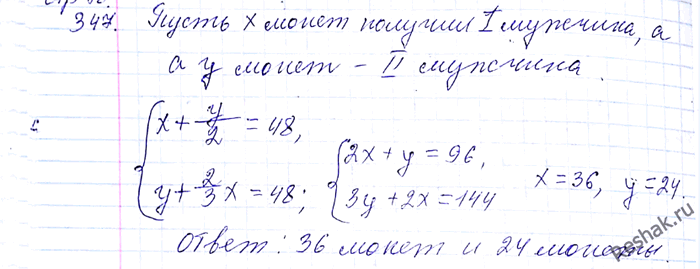 347. Пусть x монет получил I мужчина, а
а y монет - II мужчина
x + y/2 = 48,
y + 2/3 x = 48;
2x + y = 96,
3y + 2x = 144
x = 36, y = 24.
Ответ: 36 монет и 24 монеты.
Reshak.ru